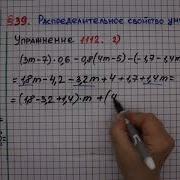 §39. Распределительное свойство ум
Упражнение 1112. 2)
(3m-7)·0,6-0,8(4m-5)-(-1,7-1,4m)
=1,8m-4,2-3,2m+4+1,7+1,4m=
=(1,8-3,2+1,4)·m+(4